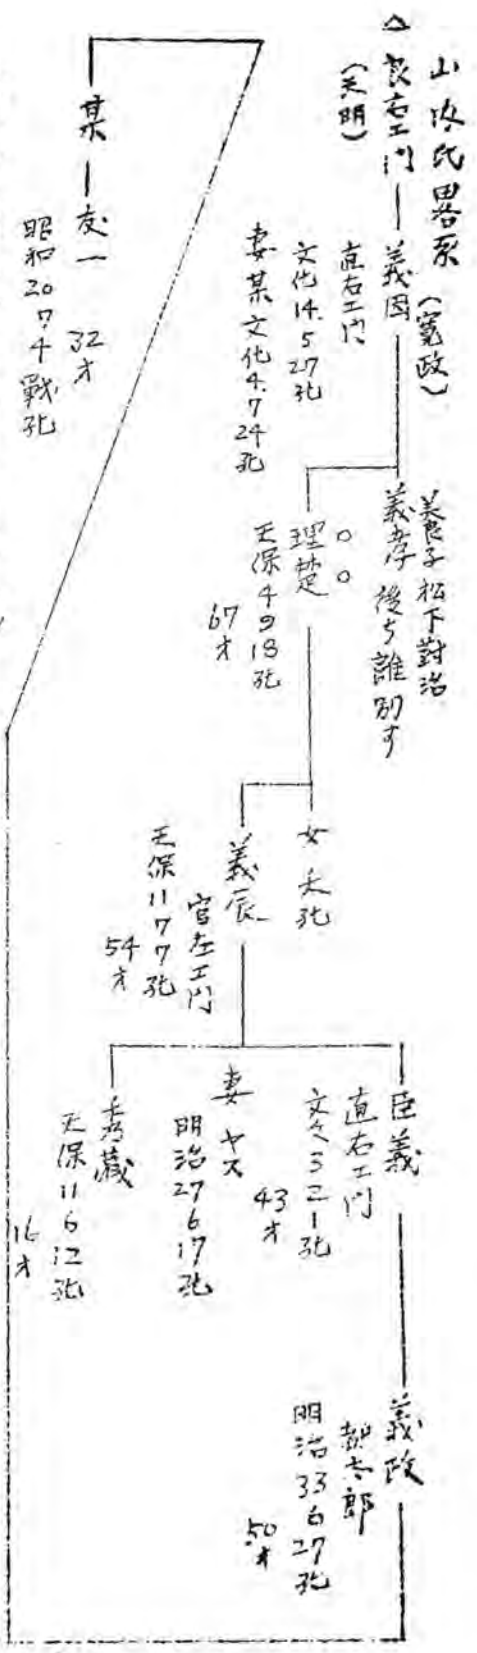 山内氏畧系 (寛政)
△ 良右エ門 ― 義因
(天明)
直右エ門
文化14.5 27死
妻某 文化4.7 24死
養子 松下對治
義孝 後ち離別す
○○
理楚
天保4 9 18死
67才
女 夭死
義辰
官左エ門
天保11 7 7死
54才
臣義
直右エ門
文久3 2 1死
43才
妻 ヤス
明治27 6 17死
秀蔵
天保11 6 12死
16才
義政
太郎
明治33 6 27死
50才
某 ― 友一 32才
昭和20 7.4 戰死